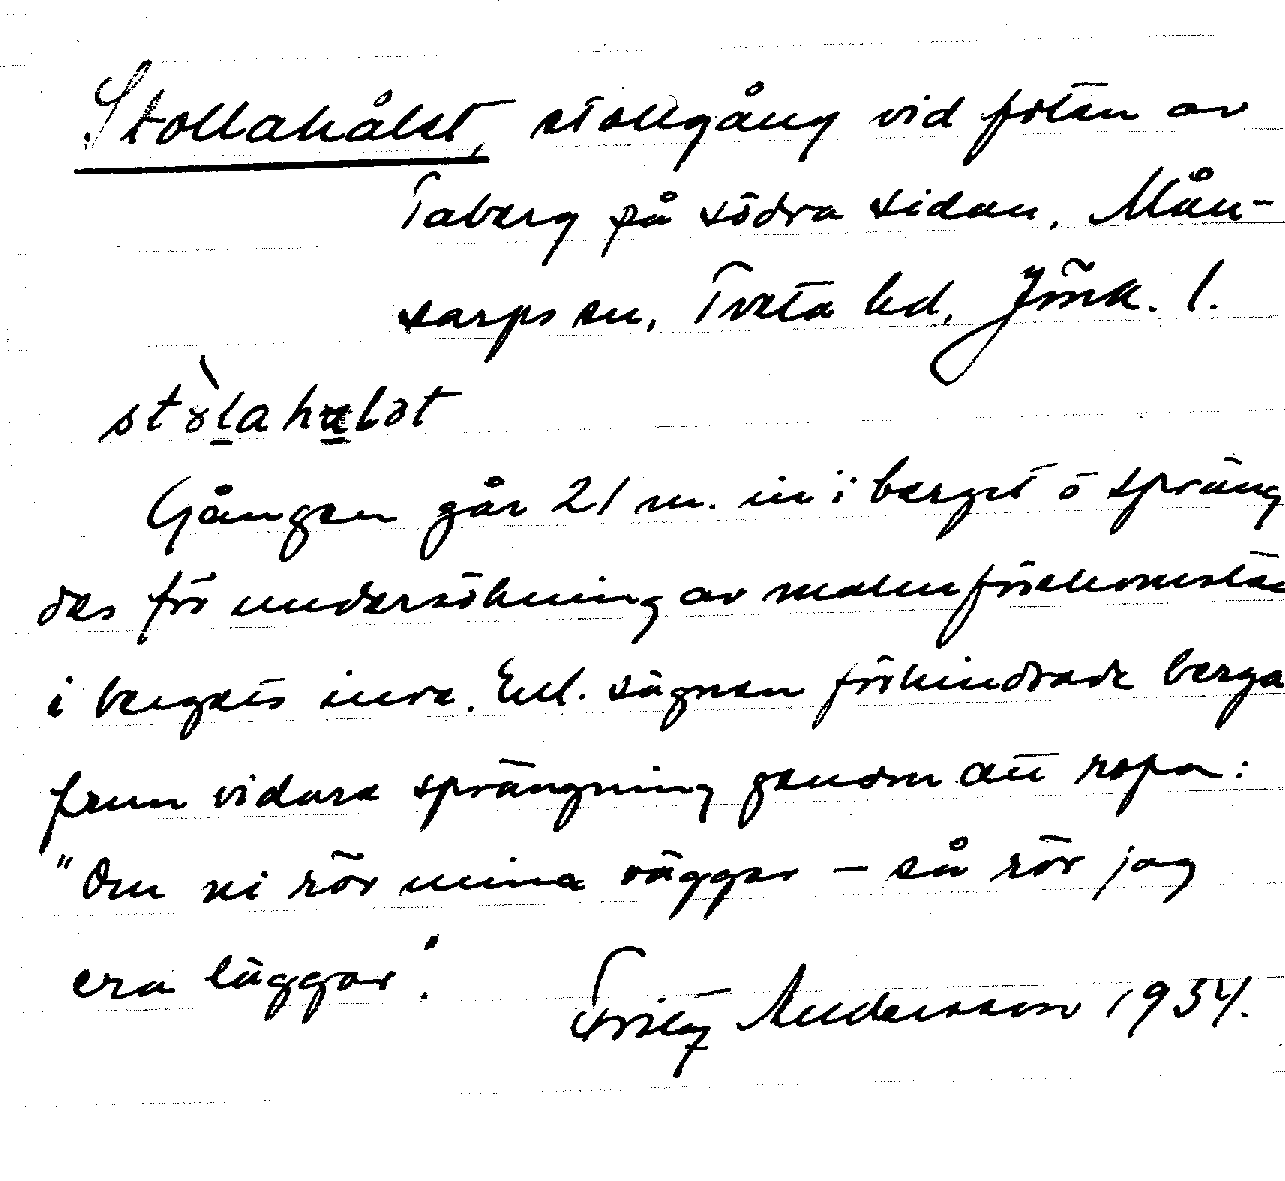 Stollahålet, stollgång vid foten av
Taberg på södra sidan, Mån-
sarps sn, Tveta hd, Jönk. l.
stòlahulət
Gången går 21 m. in i berget o spräng
des för undersökning av malmförekomsten
i bergets inre. Enl. sägnen förhindrade berga
frun vidare sprängning genom att ropa:
"Om ni rör mina väggar – så rör jag
era läggar".
Fritz Andersson 1934.